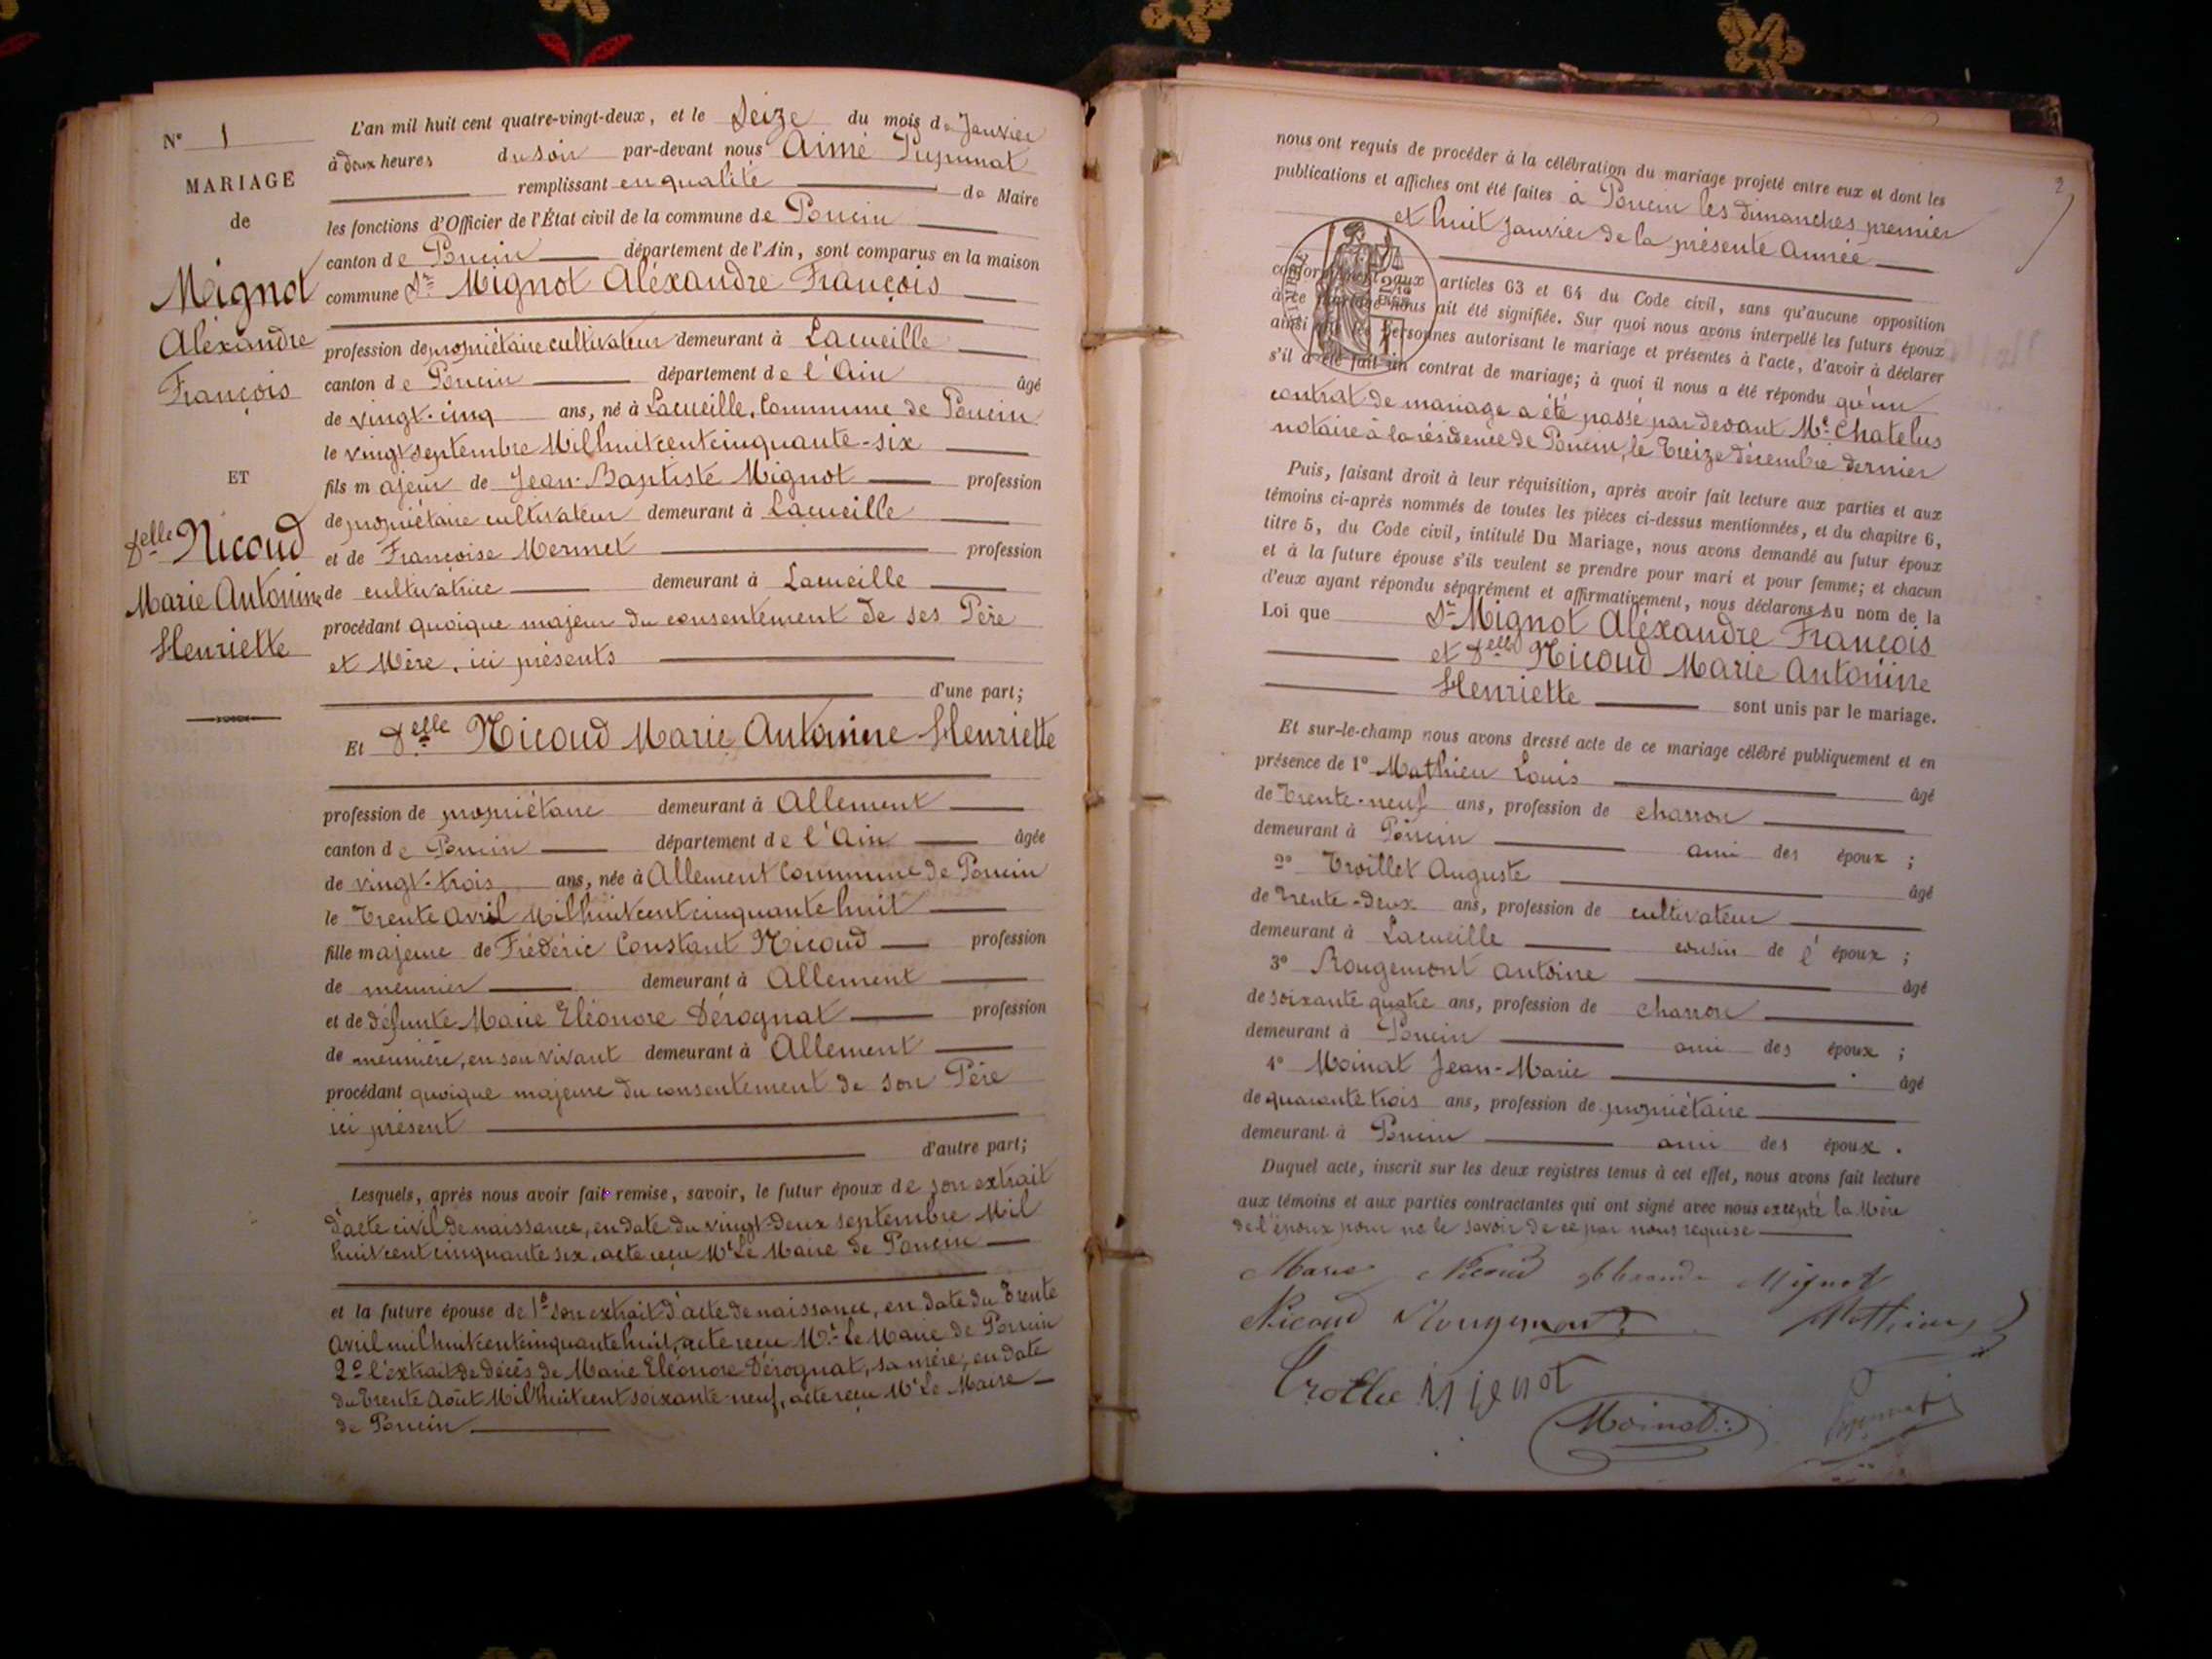 N° 1
MARIAGE
de
Mignot
Aléxandre
François
ET
Delle Nicoud
Marie Antonine
Henriette
L'an mil huit cent quatre-vingt-deux, et le Seize du mois de Janvier
à deux heures du soir par-devant nous Aimé
remplissant en qualité de Maire
les fonctions d'Officier de l'État civil de la commune de Poncin
canton de Poncin département de l'Ain, sont comparus en la maison
commune Sr Mignot Aléxandre François
profession de propriétaire cultivateur demeurant à Lacueille
canton de Poncin département de l'Ain âgé
de vingt-cinq ans, né à Lacueille, Commune de Poncin
le vingt septembre Mil huit cent cinquante-six
fils majeur de Jean-Baptiste Mignot profession
de propriétaire cultivateur demeurant à Lacueille
et de Françoise Mermet profession
de cultivatrice demeurant à Lacueille
procédant quoique majeur du consentement de ses Père
et Mère, ici présents
d'une part;
Et Delle Nicoud Marie Antonine Henriette
profession de propriétaire demeurant à Allement
canton de Poncin département de l'Ain âgée
de vingt-trois ans, née à Allement Commune de Poncin
le Trente Avril Mil huit cent cinquante huit
fille majeure de Frédéric Constant Nicoud profession
de meunier demeurant à Allement
et de défunte Marie Eléonore Dérognat profession
de meunière, en son vivant demeurant à Allement
procédant quoique majeure du consentement de son Père
ici présent
d'autre part;
Lesquels, après nous avoir fait remise, savoir, le futur époux de son extrait
d'acte civil de naissance, en date du vingt-deux septembre Mil
huit cent cinquante six, acte reçu Mr Le Maire de Poncin
et la future épouse de 1° son extrait d'acte de naissance, en date du Trente
Avril mil huit cent cinquante huit, acte reçu Mr Le Maire de Poncin
2° l'extrait de décès de Marie Eléonore Dérognat, sa mère, en date
du Trente Août Mil huit cent soixante neuf, acte reçu Mr Le Maire
de Poncin
2
nous ont requis de procéder à la célébration du mariage projeté entre eux et dont les
publications et affiches ont été faites à Poncin les dimanches premier
et huit Janvier de la présente Année
conformément aux articles 63 et 64 du Code civil, sans qu'aucune opposition
à ce mariage nous ait été signifiée. Sur quoi nous avons interpellé les futurs époux
ainsi que les personnes autorisant le mariage et présentes à l'acte, d'avoir à déclarer
s'il a été fait un contrat de mariage; à quoi il nous a été répondu qu'un
contrat de mariage a été passé par devant Me Chatelus
notaire à la résidence de Poncin, le Treize décembre dernier
Puis, faisant droit à leur réquisition, après avoir fait lecture aux parties et aux
témoins ci-après nommés de toutes les pièces ci-dessus mentionnées, et du chapitre 6,
titre 5, du Code civil, intitulé Du Mariage, nous avons demandé au futur époux
et à la future épouse s'ils veulent se prendre pour mari et pour femme; et chacun
d'eux ayant répondu séparément et affirmativement, nous déclarons Au nom de la
Loi que Sr Mignot Aléxandre François
et Delle Nicoud Marie Antonine
Henriette sont unis par le mariage.
Et sur-le-champ nous avons dressé acte de ce mariage célébré publiquement et en
présence de 1° Mathieu Louis âgé
de Trente-neuf ans, profession de charron
demeurant à Poncin ami des époux ;
2° Troillet Auguste âgé
de Trente-deux ans, profession de cultivateur
demeurant à Lacueille cousin de l'époux ;
3° Rougemont Antoine âgé
de soixante quatre ans, profession de charron
demeurant à Poncin ami des époux ;
4° Moinat Jean-Marie âgé
de quarante trois ans, profession de propriétaire
demeurant à Poncin ami des époux .
Duquel acte, inscrit sur les deux registres tenus à cet effet, nous avons fait lecture
aux témoins et aux parties contractantes qui ont signé avec nous excepté la Mère
de l'époux pour ne le savoir de ce par nous requise
Marie Nicoud Mignot
Nicoud Rougemont Mathieu
Mignot
Moinat